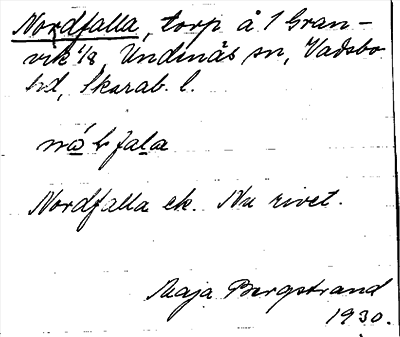 Nordfalla, torp å 1 Gran-
vik 1/8, Undenäs sn, Vadsbo
hd, Skarab. l.
fala
Nordfalla ek. Nu rivet.
Maja Bergstrand
1930.